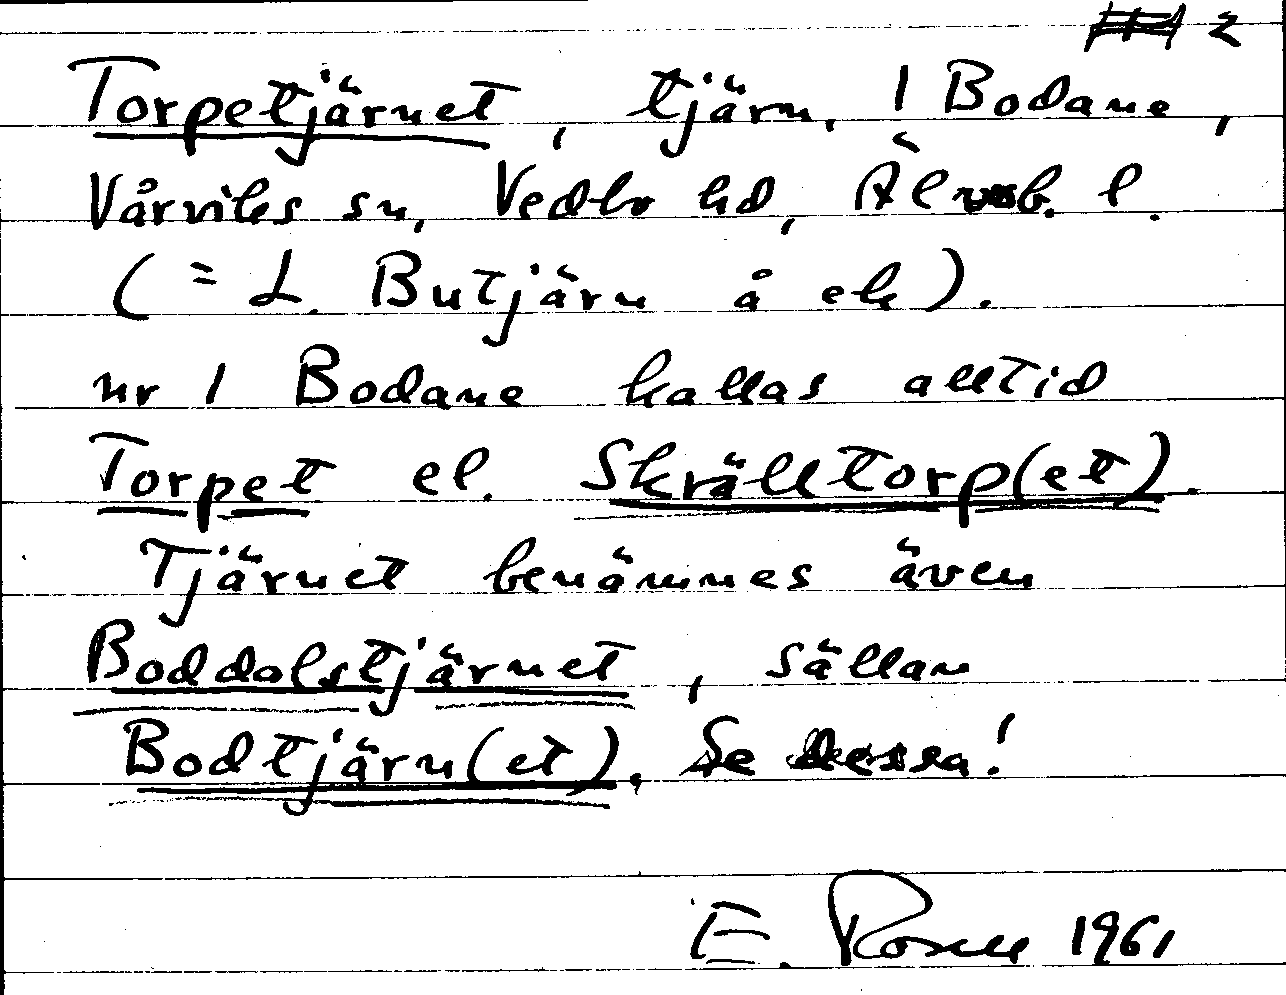 2
Torpetjärnet, tjärn, 1 Bodane,
Vårviks sn, Vedbo hd, Älvsb. l.
(= L. Butjärn å ek).
nr 1 Bodane kallas alltid
Torpet el. Skrälltorp(et).
Tjärnet benämnes även
Boddalstjärnet, sällan
Bodtjärn(et). Se dessa!
E. Rosell 1961